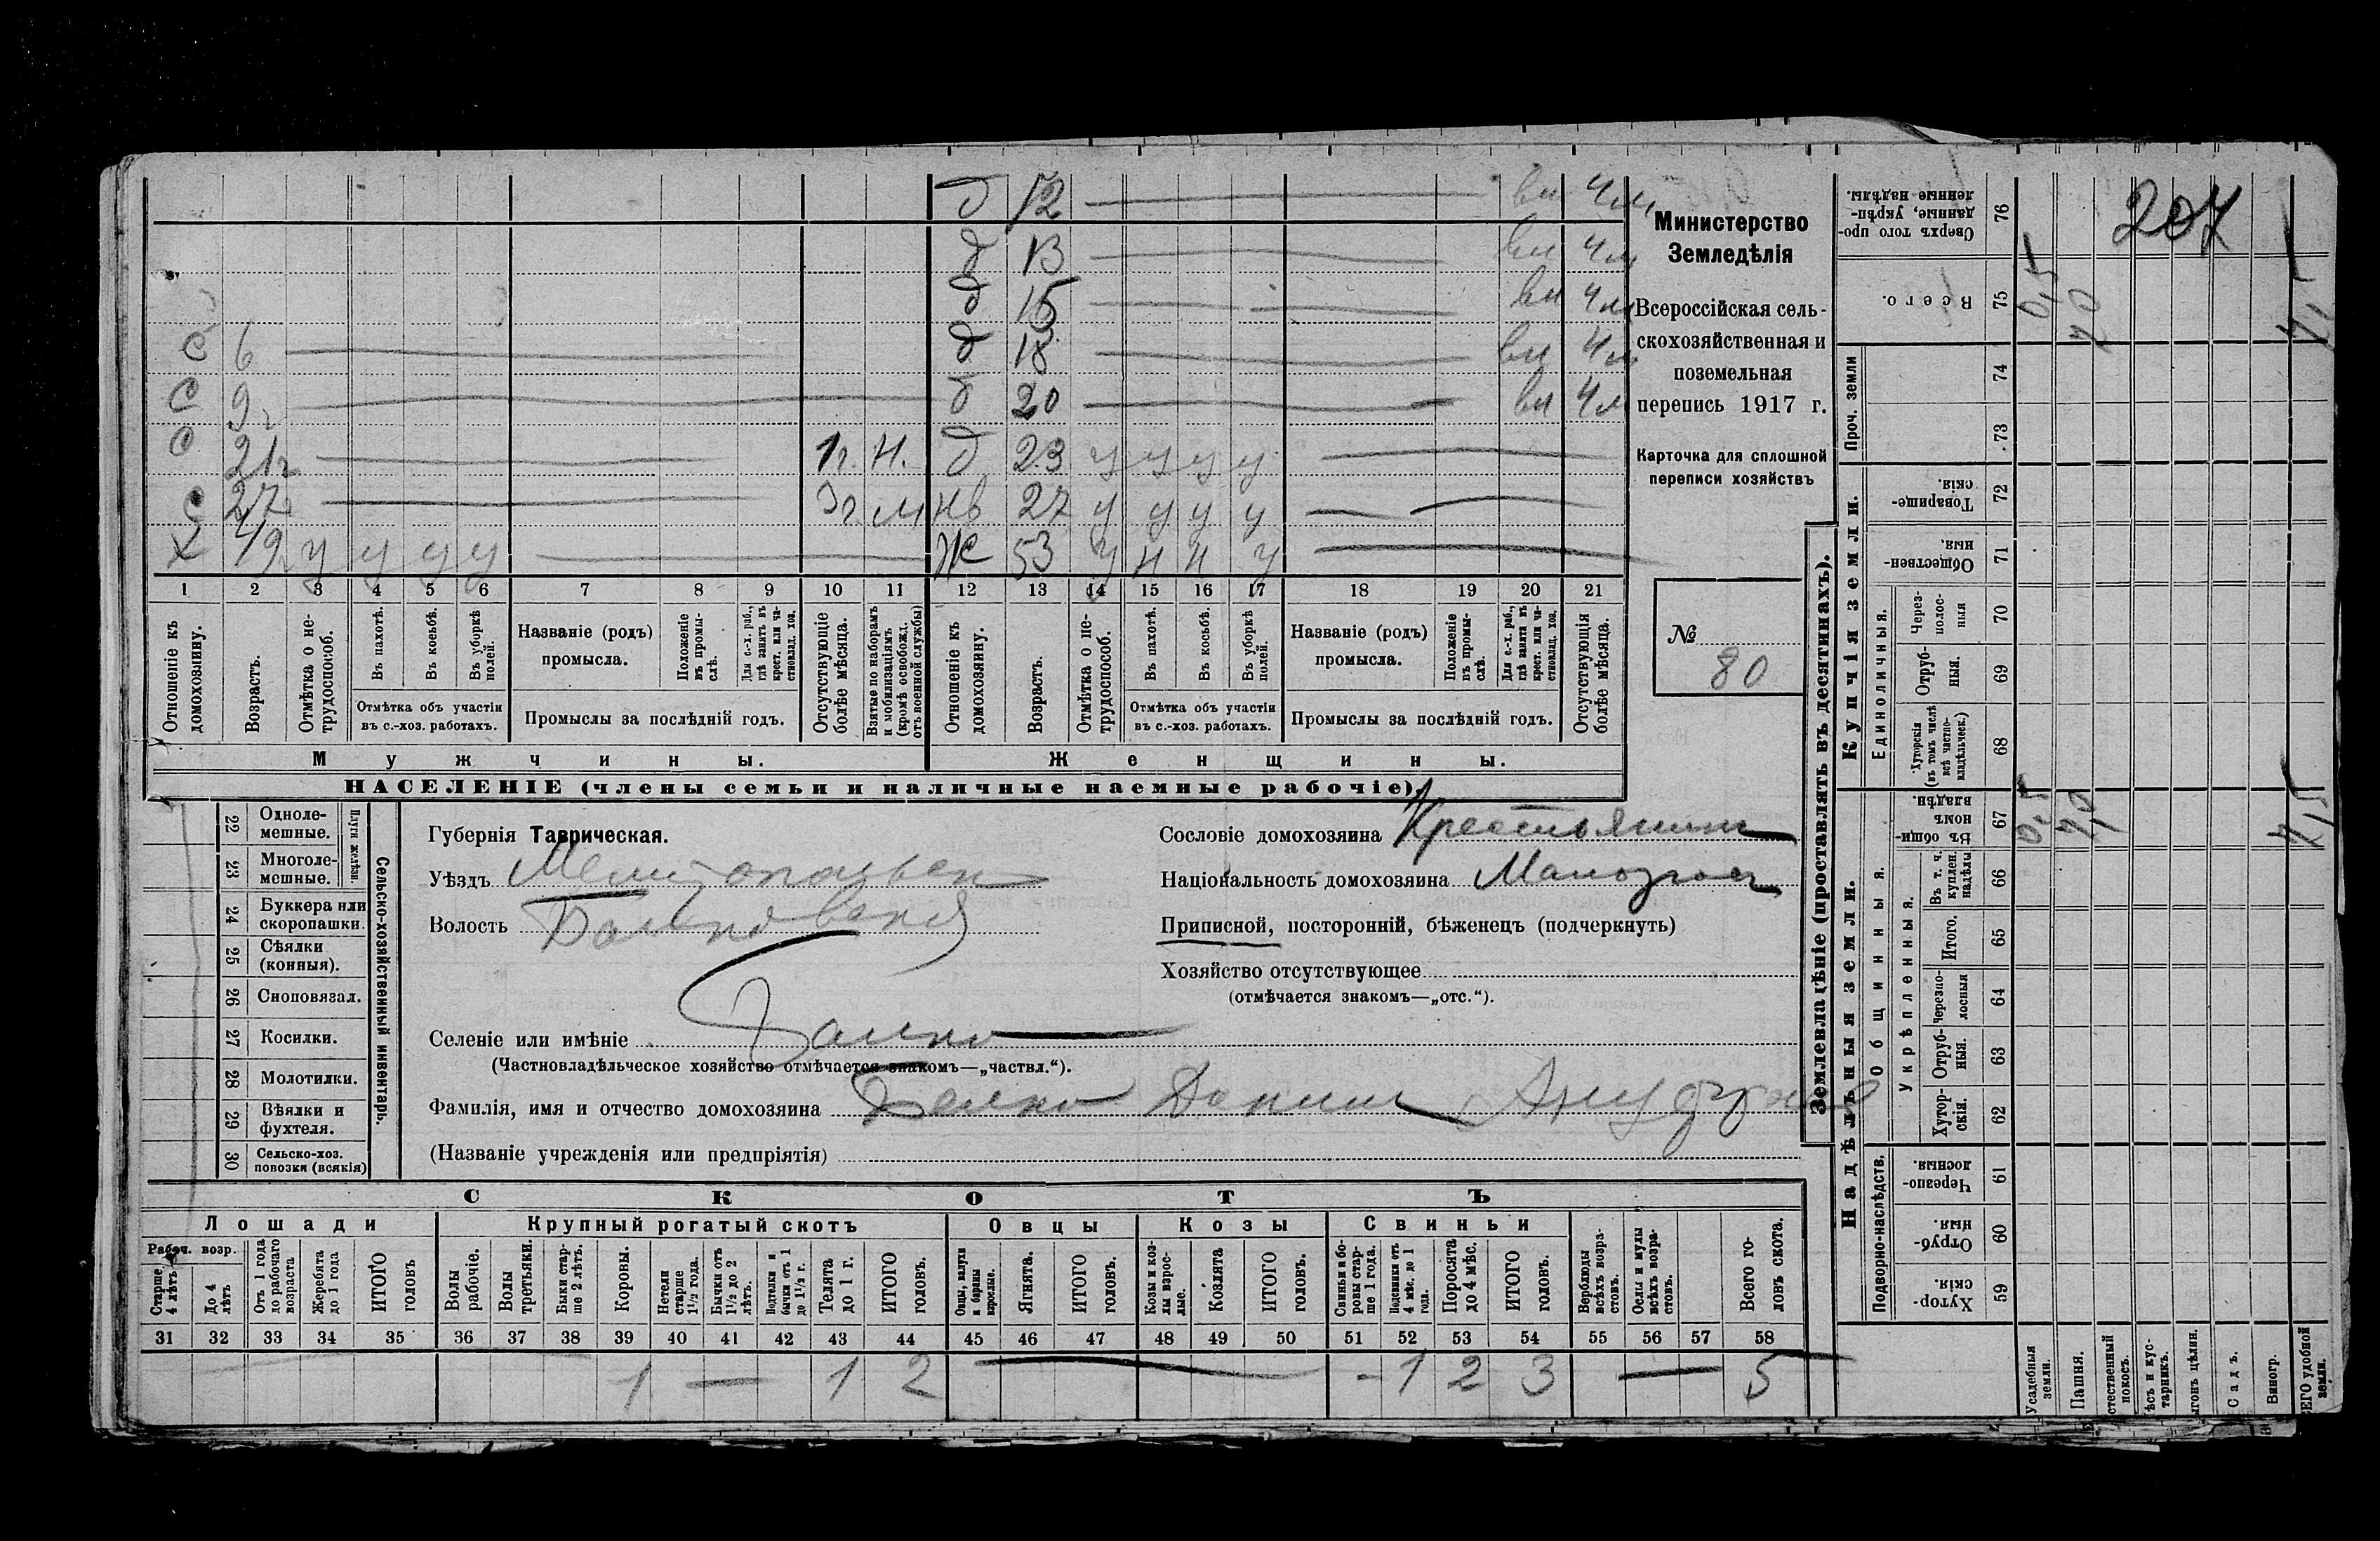 207
Министерство
Земледѣлія
Всероссійская сель-
скохозяйственная и
поземельная
перепись 1917 г.
Карточка для сплошной
переписи хозяйствъ
№
80
д 12 вн 4м
д 13 вн 4м
д 15 вн 4м
с 6 д 18 вн 4м
с 9г д 20 вн 4м
с 21г 1г. н. д 23 у у у у
с 27г 3г. м нв 27 у у у у
х 49 у у у у ж 53 у н н у
1 2 3 4 5 6 7 8 9 10 11 12 13 14 15 16 17 18 19 20 21
Отношеніе къ домохозяину.
Возрастъ.
Отмѣтка о не-трудоспособ.
Въ пахотѣ.
Въ косьбѣ.
Въ уборкѣ полей.
Отмѣтка объ участіи въ с.-хоз. работахъ.
Названіе (родъ) промысла.
Положеніе въ промы-слѣ.
Для с.-х. раб., гдѣ занятъ въ крест. или ча-стновлад. хоз.
Промыслы за послѣдній годъ.
Отсутствующіе болѣе мѣсяца.
Взятые по наборамъ и мобилизаціямъ (кромѣ освобожд. отъ военной службы)
Отношеніе къ домохозяину.
Возрастъ.
Отмѣтка о не-трудоспособ.
Въ пахотѣ.
Въ косьбѣ.
Въ уборкѣ полей.
Отмѣтка объ участіи въ с.-хоз. работахъ.
Названіе (родъ) промысла.
Положеніе въ промы-слѣ.
Для с.-х. раб., гдѣ занята въ крест. или ча-стновлад. хоз.
Промыслы за послѣдній годъ.
Отсутствующія болѣе мѣсяца.
Мужчины. Женщины.
НАСЕЛЕНІЕ (члены семьи и наличные наемные рабочіе)
Сельско-хозяйственный инвентарь.
Плуги желѣзн.
22 Одноле-мешные.
23 Многоле-мешные.
24 Буккера или скоропашки.
25 Сѣялки (конныя).
26 Сноповязал.
27 Косилки.
28 Молотилки.
29 Вѣялки и фухтеля.
30 Сельско-хоз. повозки (всякія)
Губернія Таврическая.
Уѣздъ Мелитопольск
Волость Балковская
Селеніе или имѣніе Балки
(Частновладѣльческое хозяйство отмѣчается знакомъ—„частвл.“).
Фамилія, имя и отчество домохозяина Данил
(Названіе учрежденія или предпріятія)
Сословіе домохозяина Крестьянин
Національность домохозяина Малоросс
Приписной, посторонній, бѣженецъ (подчеркнуть)
Хозяйство отсутствующее
(отмѣчается знакомъ—„отс.“).
СКОТЪ
Лошади Крупный рогатый скотъ Овцы Козы Свиньи
Рабоч. возр.
Старше 4 лѣтъ
До 4 лѣтъ
Отъ 1 года до рабочаго возраста
Жеребята до 1 года
ИТОГО головъ
Волы рабочіе.
Волы третьяки.
Быки стар-ше 2 лѣтъ.
Коровы.
Нетели старше 1½ года.
Бычки отъ 1½ до 2 лѣтъ.
Подтелки и бычки отъ 1 до 1½ г.
Телята до 1 г.
ИТОГО головъ.
Овцы, валухи и бараны взрослые.
Ягнята.
ИТОГО головъ.
Козы и коз-лы взрос-лые.
Козлята
ИТОГО головъ.
Свиньи и бо-ровы стар-ше 1 года.
Подсвинки отъ 4 мѣс. до 1 года.
Поросята до 4 мѣс.
ИТОГО головъ.
Верблюды всѣхъ возра-стовъ.
Ослы и мулы всѣхъ возра-стовъ.
Всего го-ловъ скота.
31 32 33 34 35 36 37 38 39 40 41 42 43 44 45 46 47 48 49 50 51 52 53 54 55 56 57 58
1 — 1 2 - 1 2 3 — 5
Землевладѣніе (проставлять въ десятинахъ).
Надѣльныя земли.
Купчія земли.
Проч. земли
Подворно-наслѣдств.
Общинныя.
Укрѣпленныя.
Единоличныя.
Сверхъ того про-данные, укрѣп-ленные надѣлы. 76
Всего. 75 0,5 7,0 7,5
74
73
Товарище-скія. 72
Обществен-ныя. 71
Через-полос-ныя 70
Отруб-ныя. 69
Хуторскія (въ томъ числѣ всѣ частно-владѣльческ.) 68
Въ общи-номъ владѣн. 67 0,5 7,0 7,5
Въ т. ч. куплен. надѣлы 66
Итого. 65
Черезпо-лосныя 64
Отруб-ныя. 63
Хутор-скія. 62
Черезпо-лосныя. 61
Отруб-ныя. 60
Хутор-скія. 59
Усадебныя земли.
Пашня.
стественный покосъ.
ѣсъ и кус-тарникъ.
ыгонъ цѣлин.
Садъ.
Виногр.
СЕГО удобной земли.